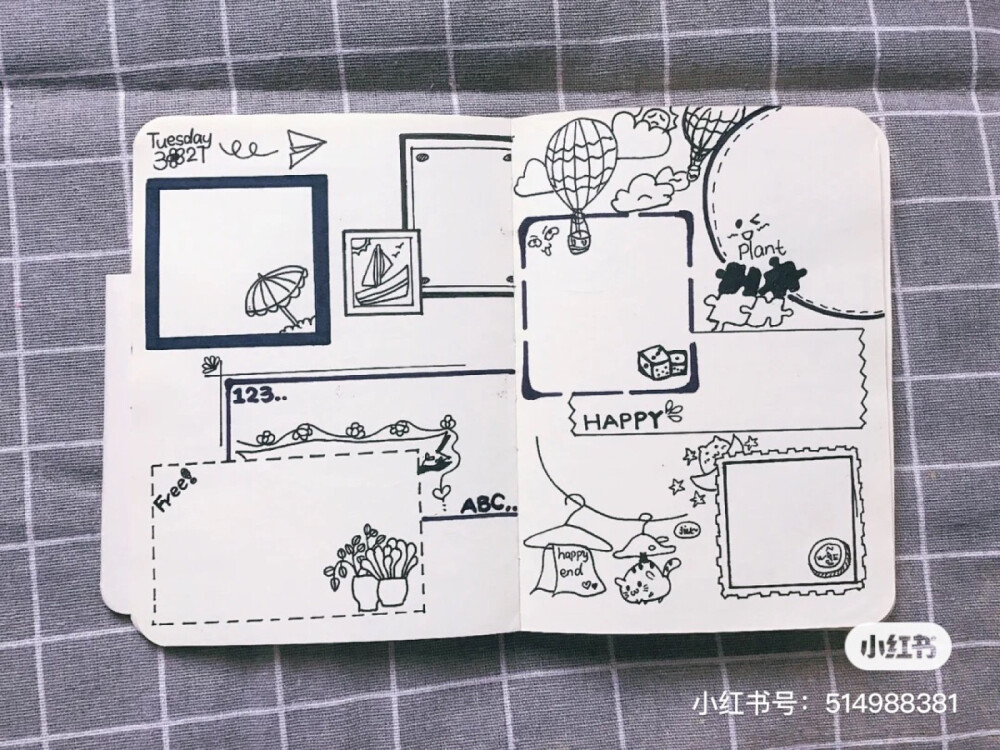 Tuesday
123..
Free!
ABC..
Plant
HAPPY
happy
end
小红书
小红书号：514988381